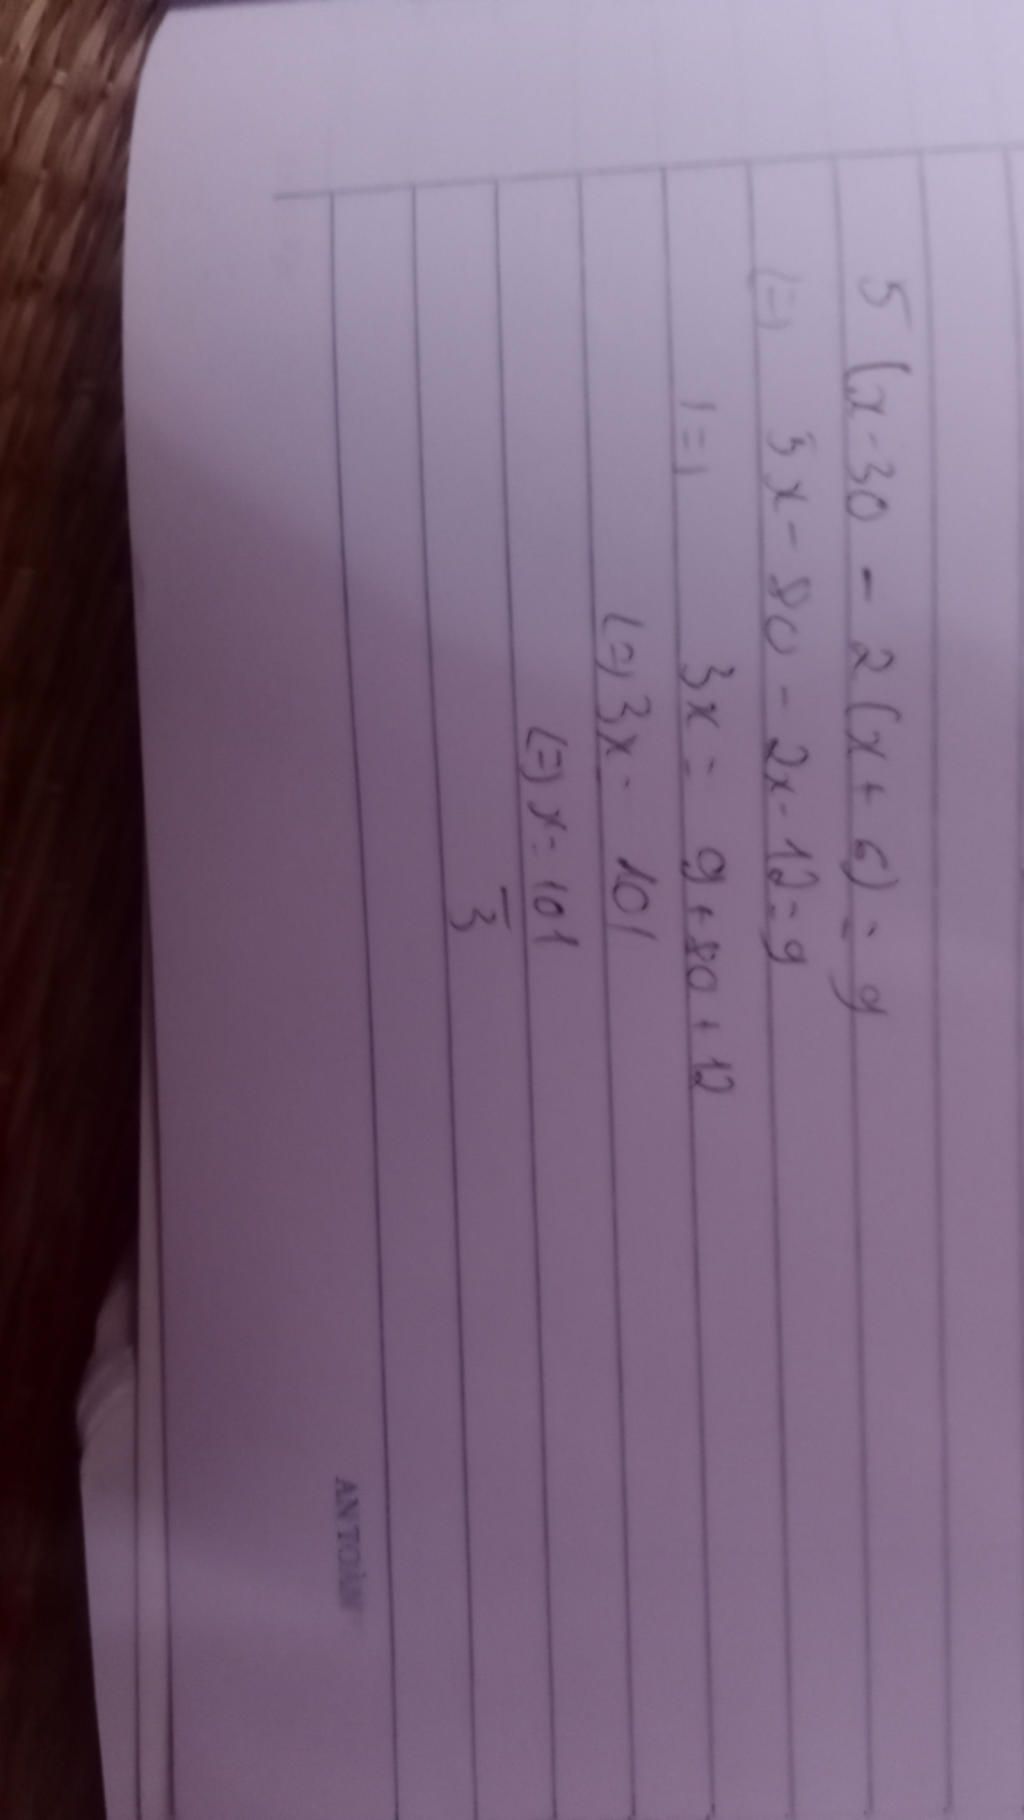 5 (x - 30 - 2 (x + 6) = 9
(=) 5x - 80 - 2x - 12 = 9
(=) 3x = 9 + 80 + 12
(=) 3x = 101
(=) x = 101
3
AN TOÀN